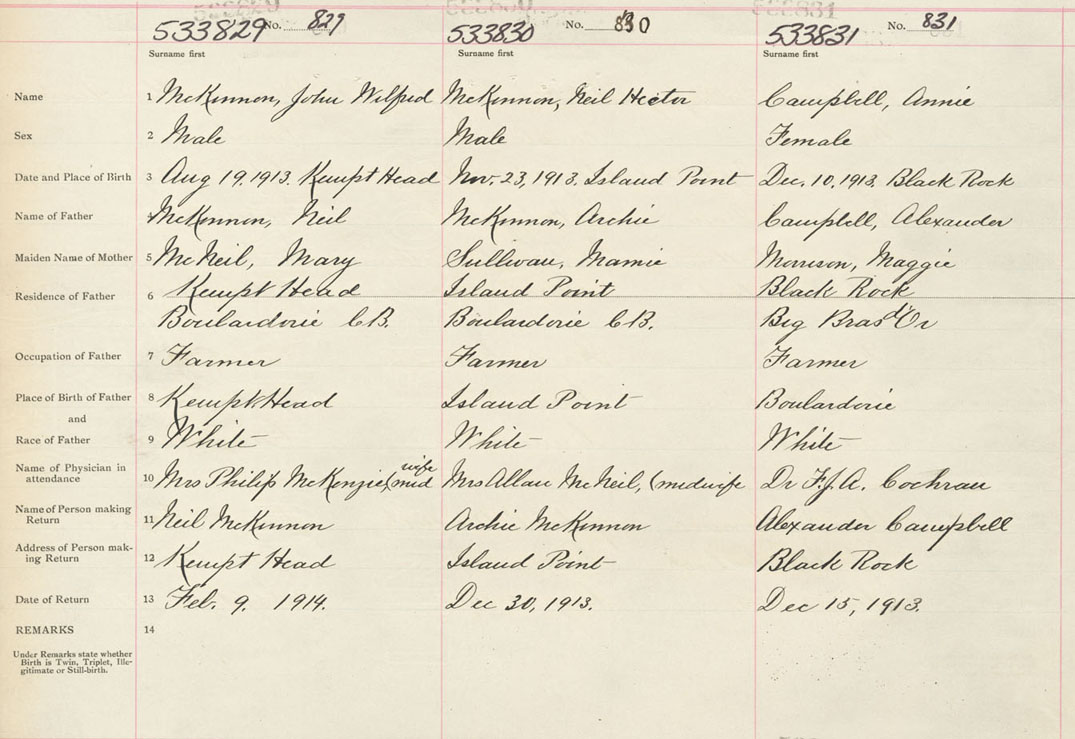 533829 No. 829 533830 No. 830 533831 No. 831
Surname first Surname first Surname first
Name 1 McKinnon, John Wilfred McKinnon, Neil Hector Campbell, Annie
Sex 2 Male Male Female
Date and Place of Birth 3 Aug 19. 1913. Kempt Head Nov. 23, 1913. Island Point Dec. 10, 1913. Black Rock
Name of Father 4 McKinnon, Neil McKinnon, Archie Campbell, Alexander
Maiden Name of Mother 5 McNeil, Mary Sullivan, Mamie Morrison, Maggie
Residence of Father 6 Kempt Head Island Point Black Rock
Boulardorie C.B. Boulardorie C.B. Big Bras d'Or
Occupation of Father 7 Farmer Farmer Farmer
Place of Birth of Father 8 Kempt Head Island Point Boulardorie
and
Race of Father 9 White White White
Name of Physician in
attendance 10 Mrs Philip McKenzie, (midwife Mrs Allan McNeil, (midwife Dr F.J.A. Cochran
Name of Person making
Return 11 Neil McKinnon Archie McKinnon Alexander Campbell
Address of Person mak-
ing Return 12 Kempt Head Island Point Black Rock
Date of Return 13 Feb. 9. 1914. Dec 30, 1913. Dec 15, 1913.
REMARKS 14
Under Remarks state whether
Birth is Twin, Triplet, Ille-
gitimate or Still-birth.